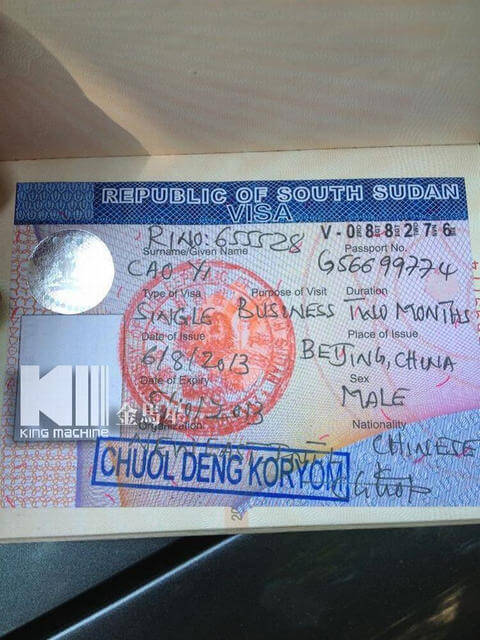 REPUBLIC OF SOUTH SUDAN
VISA
R/NO: 655528 V - 0 8 8 2 7 6
Surname/Given Name Passport No.
CAO YI G56699774
Type of Visa Purpose of Visit Duration
SINGLE BUSINESS TWO MONTHS
Date of Issue Place of Issue
6/8/2013 BEIJING, CHINA
Date of Expiry Sex
/2013 MALE
Organization Nationality
CHINESE
CHUOL DENG KORYOM
KING MACHINE